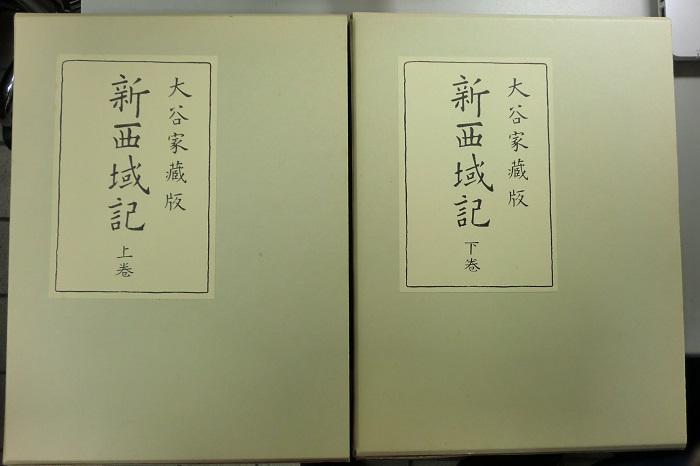 大谷家藏版
新西域記
上巻
大谷家藏版
新西域記
下巻